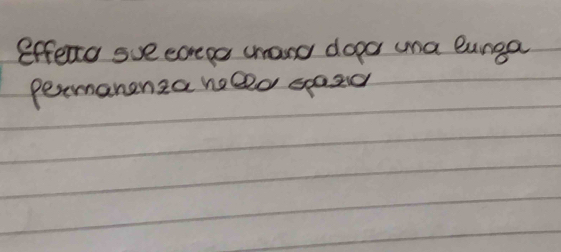 Effetto sul corpo umano dopo una lunga
permanenza nello spazio